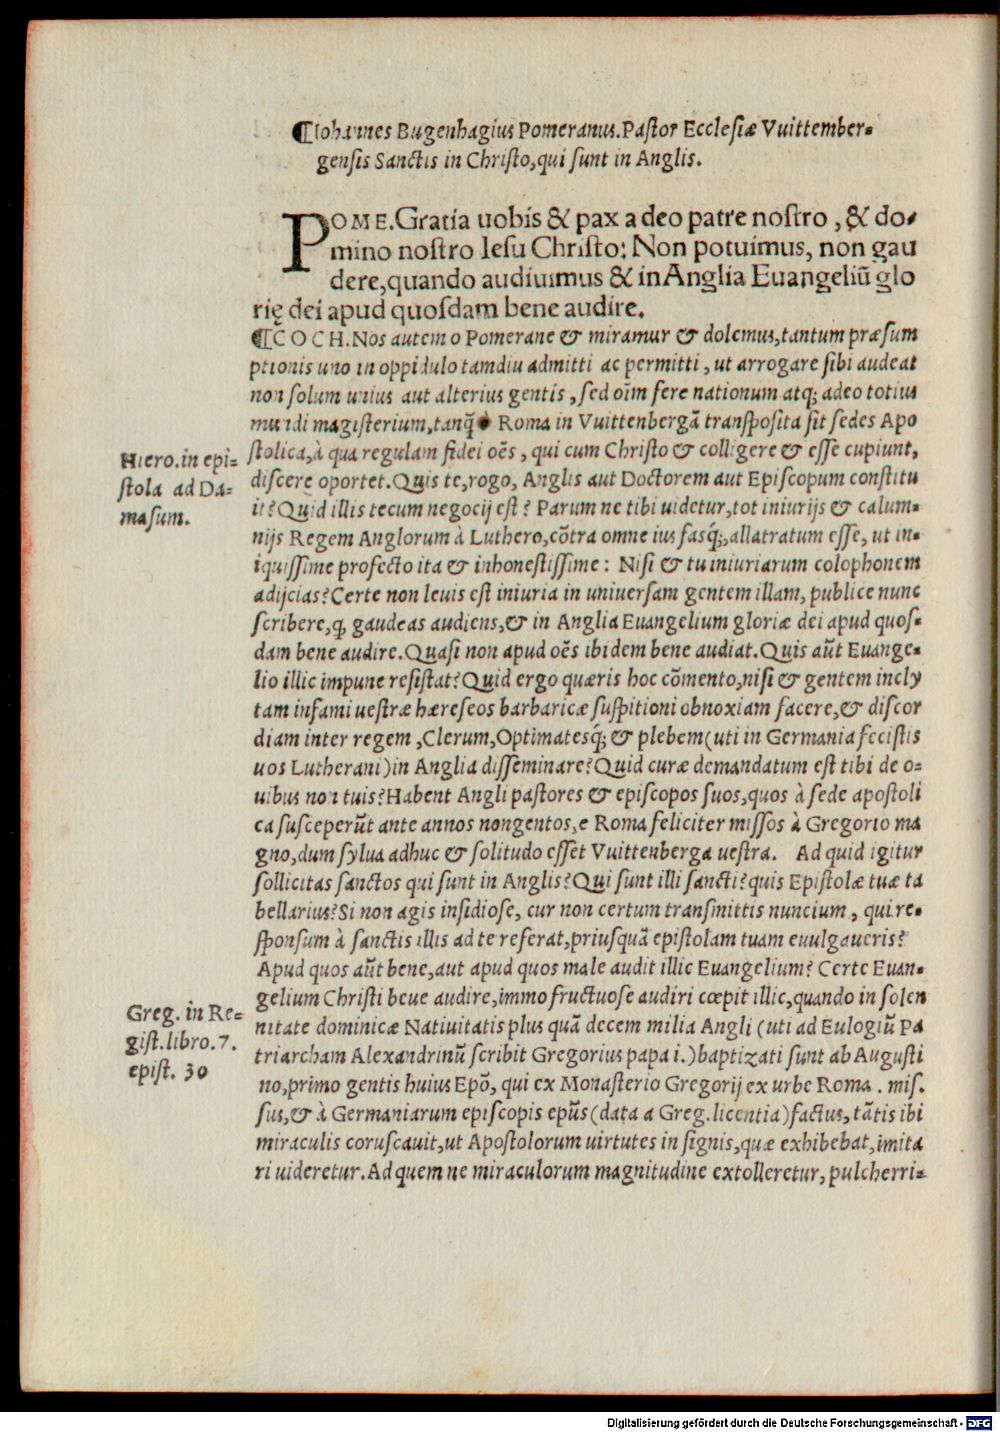 ¶Iohannes Bugenhagius Pomeranus. Pastor Ecclesiæ Vuittember-
gensis Sanctis in Christo, qui sunt in Anglis.
POME. Gratia uobis & pax a deo patre nostro, & do-
mino nostro Iesu Christo: Non potuimus, non gau
dere, quando audiuimus & in Anglia Euangeliū glo
rię dei apud quosdam bene audire.
¶COCH. Nos autem o Pomerane & miramur & dolemus, tantum præsum
ptionis uno in oppidulo tamdiu admitti ac permitti, ut arrogare sibi audeat
non solum unius aut alterius gentis, sed oīm fere nationum atq; adeo totius
mundi magisterium, tanq̄ Roma in Vuittenbergā transposita sit sedes Apo
stolica, à qua regulam fidei oēs, qui cum Christo & colligere & esse cupiunt,
discere oportet. Quis te, rogo, Anglis aut Doctorem aut Episcopum constitu
it? Quid illis tecum negocij est? Parum ne tibi uidetur, tot iniurijs & calum-
nijs Regem Anglorum à Luthero, cōtra omne ius fasq́;, allatratum esse, ut in-
iquissime profecto ita & inhonestissime: Nisi & tu iniuriarum colophonem
adijcias? Certe non leuis est iniuria in uniuersam gentem illam, publice nunc
scribere, q, gaudeas audiens, & in Anglia Euangelium gloriæ dei apud quos-
dam bene audire. Quasi non apud oēs ibidem bene audiat. Quis aūt Euange-
lio illic impune resistat? Quid ergo quæris hoc cōmento, nisi & gentem incly
tam infami uestræ hæreseos barbaricæ suspitioni obnoxiam facere, & discor
diam inter regem, Clerum, Optimatesq́; & plebem (uti in Germania fecistis
uos Lutherani) in Anglia disseminare? Quid curæ demandatum est tibi de o-
uibus non tuis? Habent Angli pastores & episcopos suos, quos à sede apostoli
ca susceperūt ante annos nongentos, e Roma feliciter missos à Gregorio ma
gno, dum sylua adhuc & solitudo esset Vuittenberga uestra. Ad quid igitur
sollicitas sanctos qui sunt in Anglis? Qui sunt illi sancti? quis Epistolæ tuæ ta
bellarius? Si non agis insidiose, cur non certum transmittis nuncium, qui re-
sponsum à sanctis illis ad te referat, priusquā epistolam tuam euulgaueris?
Apud quos aūt bene, aut apud quos male audit illic Euangelium? Certe Euan-
gelium Christi beue audire, immo fructuose audiri cœpit illic, quando in solen
nitate dominicæ Natiuitatis plus quā decem milia Angli (uti ad Eulogiū Pa
triarcham Alexandrinū scribit Gregorius papa i.) baptizati sunt ab Augusti
no, primo gentis huius Epō, qui ex Monasterio Gregorij ex urbe Roma. mis.
sus, & à Germaniarum episcopis epūs (data a Greg. licentia) factus, tātis ibi
miraculis coruscauit, ut Apostolorum uirtutes in signis, quæ exhibebat, imita
ri uideretur. Ad quem ne miraculorum magnitudine extolleretur, pulcherri-
Hiero. in epi-
stola ad Da-
masum.
Greg. in Re-
gist. libro. 7.
epist. 30
Digitalisierung gefördert durch die Deutsche Forschungsgemeinschaft - DFG